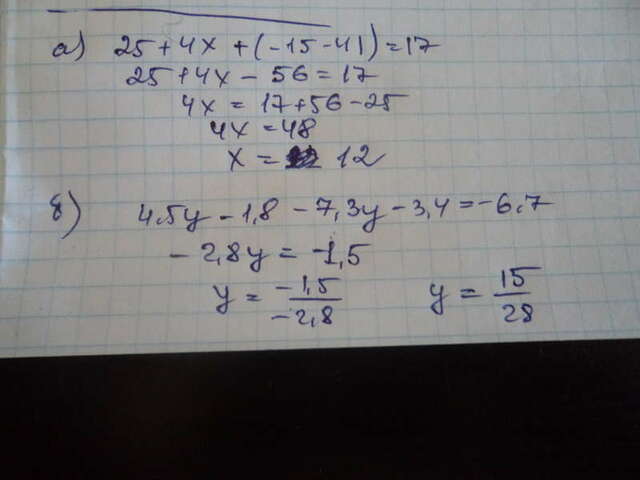 а) 25 + 4x + (-15-41) = 17
25 + 4x - 56 = 17
4x = 17 + 56 - 25
4x = 48
x = 12
б) 4,5y - 1,8 - 7,3y - 3,4 = -6.7
-2,8y = -1,5
y = -1,5/-2,8 y = 15/28